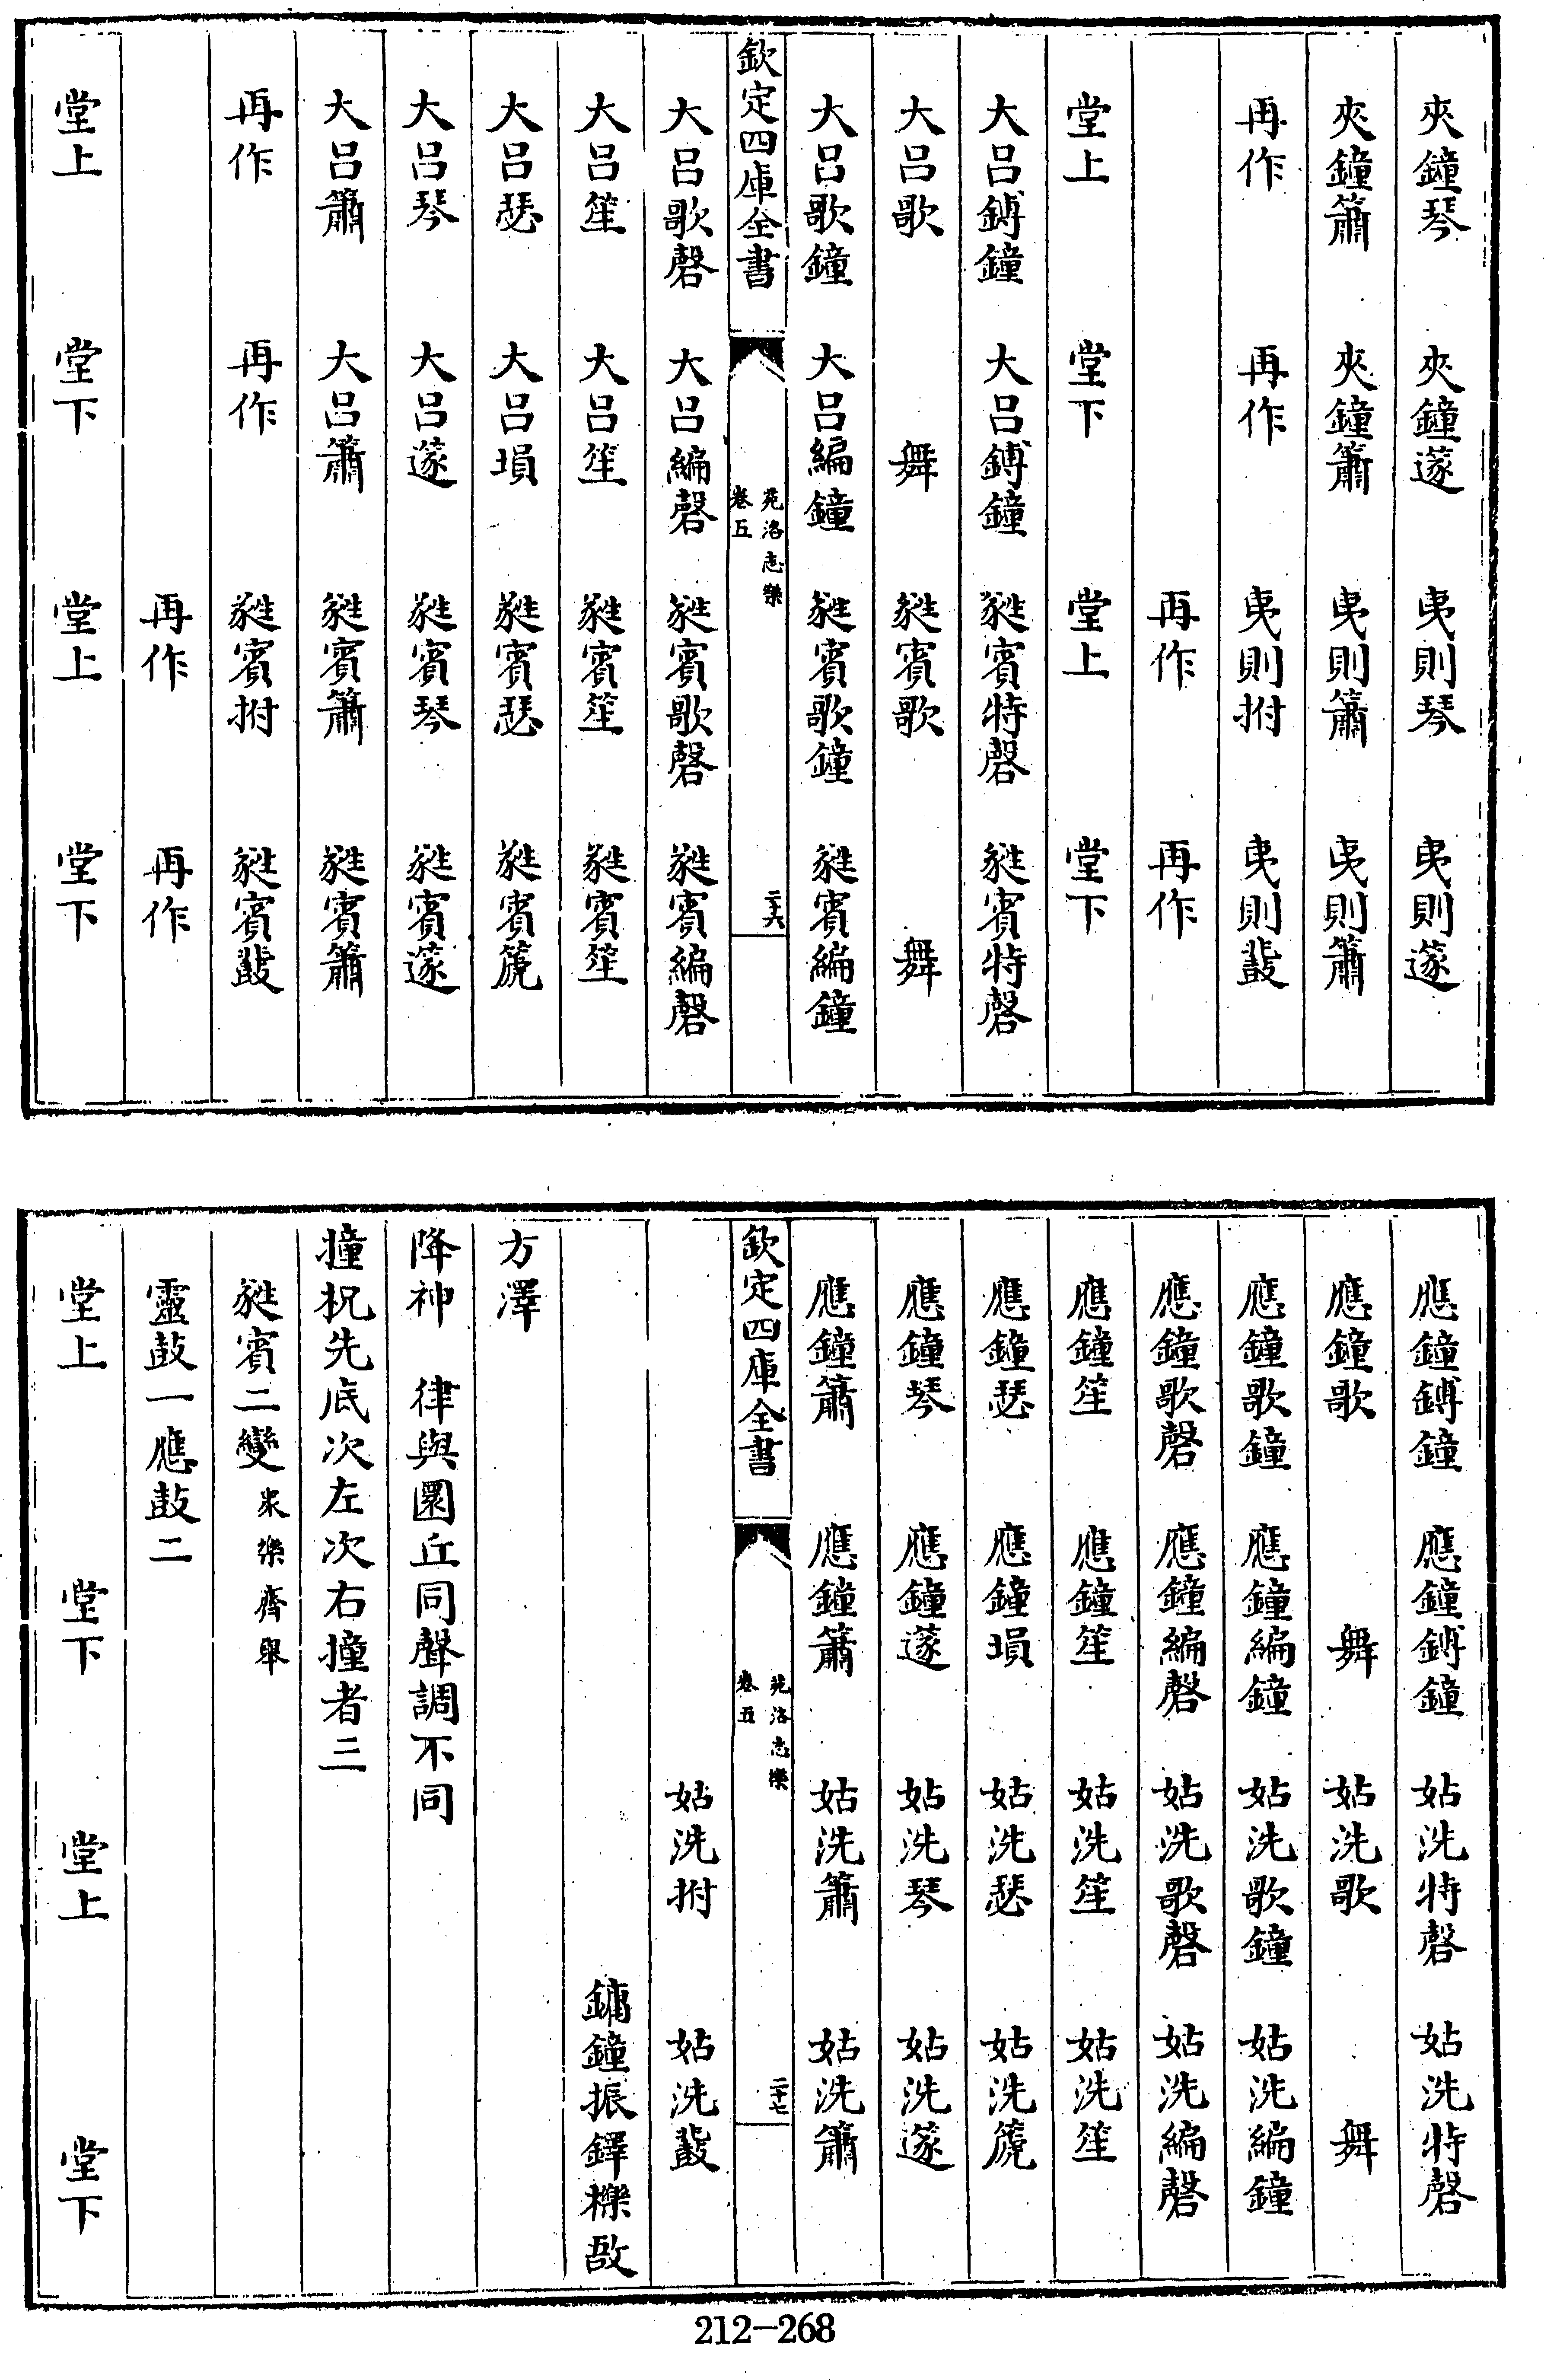 夾鐘琴　夾鐘篴　夷則琴　夷則篴
夾鐘簫　夾鐘簫　夷則簫　夷則簫
再作　再作　夷則拊　夷則鼗
再作　再作
堂上　堂下　堂上　堂下
大吕鎛鐘　大吕鎛鐘　蕤賓特磬　蕤賓特磬
大吕歌　舞　蕤賓歌　舞
大吕歌鐘　大吕編鐘　蕤賓歌鐘　蕤賓編鐘
欽定四庫全書　苑洛志樂　卷五　二十六
大吕歌磬　大吕編磬　蕤賓歌磬　蕤賓編磬
大吕笙　大吕笙　蕤賓笙　蕤賓笙
大吕瑟　大吕塤　蕤賓瑟　蕤賓篪
大吕琴　大吕篴　蕤賓琴　蕤賓篴
大吕簫　大吕簫　蕤賓簫　蕤賓簫
再作　再作　蕤賓拊　蕤賓鼗
再作　再作
堂上　堂下　堂上　堂下
應鐘鎛鐘　應鐘鎛鐘　姑洗特磬　姑洗特磬
應鐘歌　舞　姑洗歌　舞
應鐘歌鐘　應鐘編鐘　姑洗歌鐘　姑洗編鐘
應鐘歌磬　應鐘編磬　姑洗歌磬　姑洗編磬
應鐘笙　應鐘笙　姑洗笙　姑洗笙
應鐘瑟　應鐘塤　姑洗瑟　姑洗篪
應鐘琴　應鐘篴　姑洗琴　姑洗篴
應鐘簫　應鐘簫　姑洗簫　姑洗簫
欽定四庫全書　苑洛志樂　卷五　二十七
姑洗拊　姑洗鼗
鏞鐘振鐸櫟敔
方澤
降神　律與圜丘同聲調不同
撞柷先底次左次右撞者三
蕤賓二變衆樂齊舉
靈鼓一應鼓二
堂上　堂下　堂上　堂下
212-268